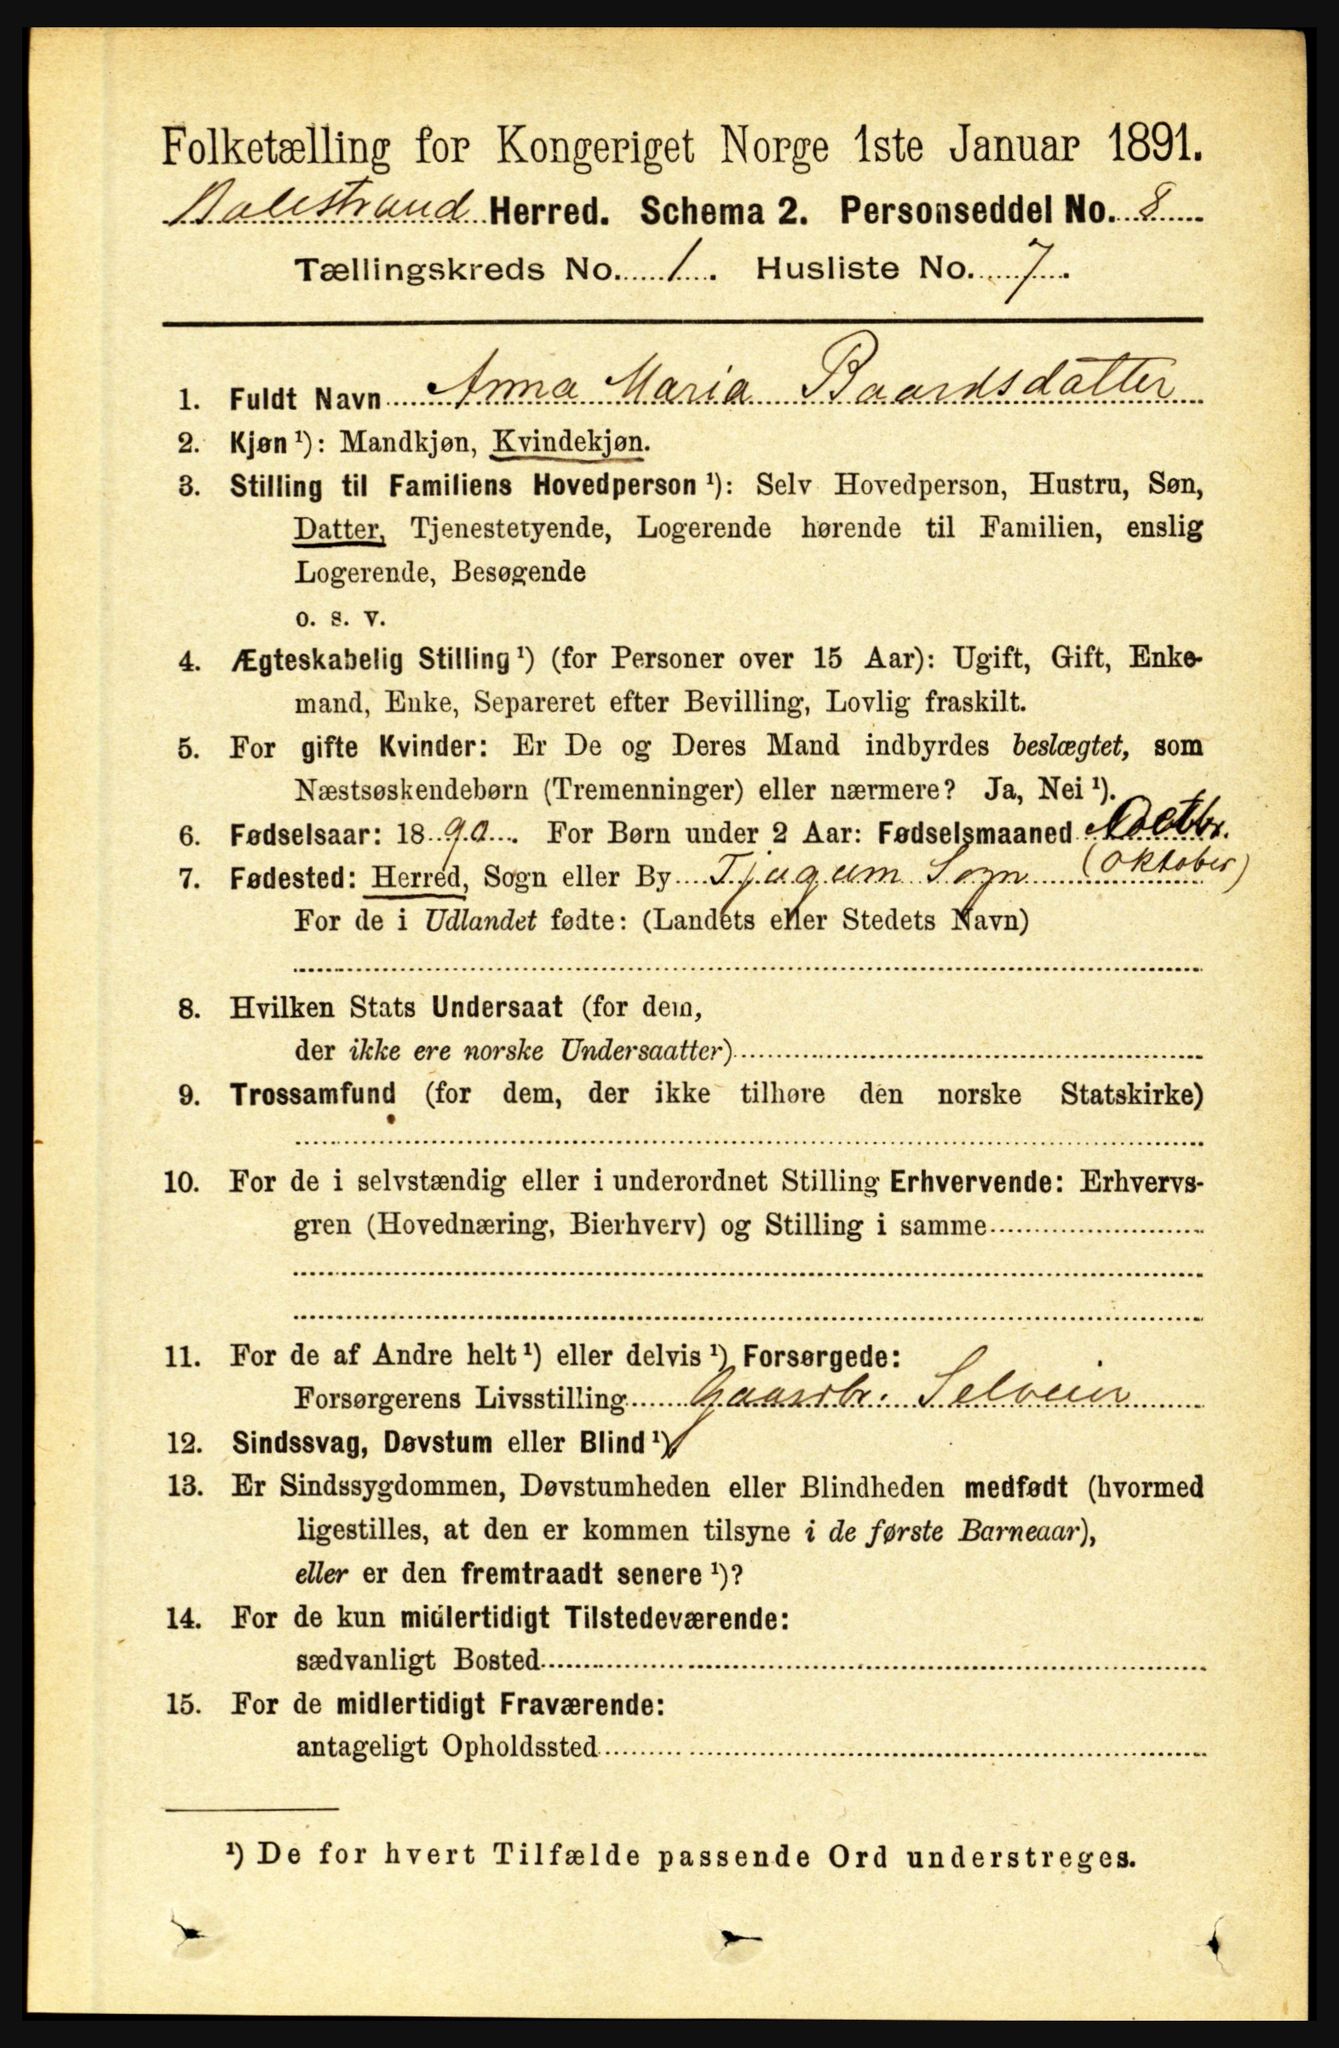 Folketælling for Kongeriget Norge 1ste Januar 1891.
Balestrand Herred. Schema 2. Personseddel No. 8
Tællingskreds No. 1. Husliste No. 7.
1. Fuldt Navn Anna Maria Baardsdatter
2. Kjøn ¹): Mandkjøn, Kvindekjøn.
3. Stilling til Familiens Hovedperson ¹): Selv Hovedperson, Hustru, Søn,
Datter, Tjenestetyende, Logerende hørende til Familien, enslig
Logerende, Besøgende
o. s. v.
4. Ægteskabelig Stilling ¹) (for Personer over 15 Aar): Ugift, Gift, Enke-
mand, Enke, Separeret efter Bevilling, Lovlig fraskilt.
5. For gifte Kvinder: Er De og Deres Mand indbyrdes beslægtet, som
Næstsøskendebørn (Tremenninger) eller nærmere? Ja, Nei ¹).
6. Fødselsaar: 1890. For Børn under 2 Aar: Fødselsmaaned
7. Fødested: Herred, Sogn eller By Tjugum Sogn (Oktober)
For de i Udlandet fødte: (Landets eller Stedets Navn)
8. Hvilken Stats Undersaat (for dem,
der ikke ere norske Undersaatter)
9. Trossamfund (for dem, der ikke tilhøre den norske Statskirke)
10. For de i selvstændig eller i underordnet Stilling Erhvervende: Erhvervs-
gren (Hovednæring, Bierhverv) og Stilling i samme
11. For de af Andre helt ¹) eller delvis ¹) Forsørgede:
Forsørgerens Livsstilling Gaardbr. Selveier
12. Sindssvag, Døvstum eller Blind ¹)
13. Er Sindssygdommen, Døvstumheden eller Blindheden medfødt (hvormed
ligestilles, at den er kommen tilsyne i de første Barneaar),
eller er den fremtraadt senere ¹)?
14. For de kun midlertidigt Tilstedeværende:
sædvanligt Bosted
15. For de midlertidigt Fraværende:
antageligt Opholdssted
¹) De for hvert Tilfælde passende Ord understreges.